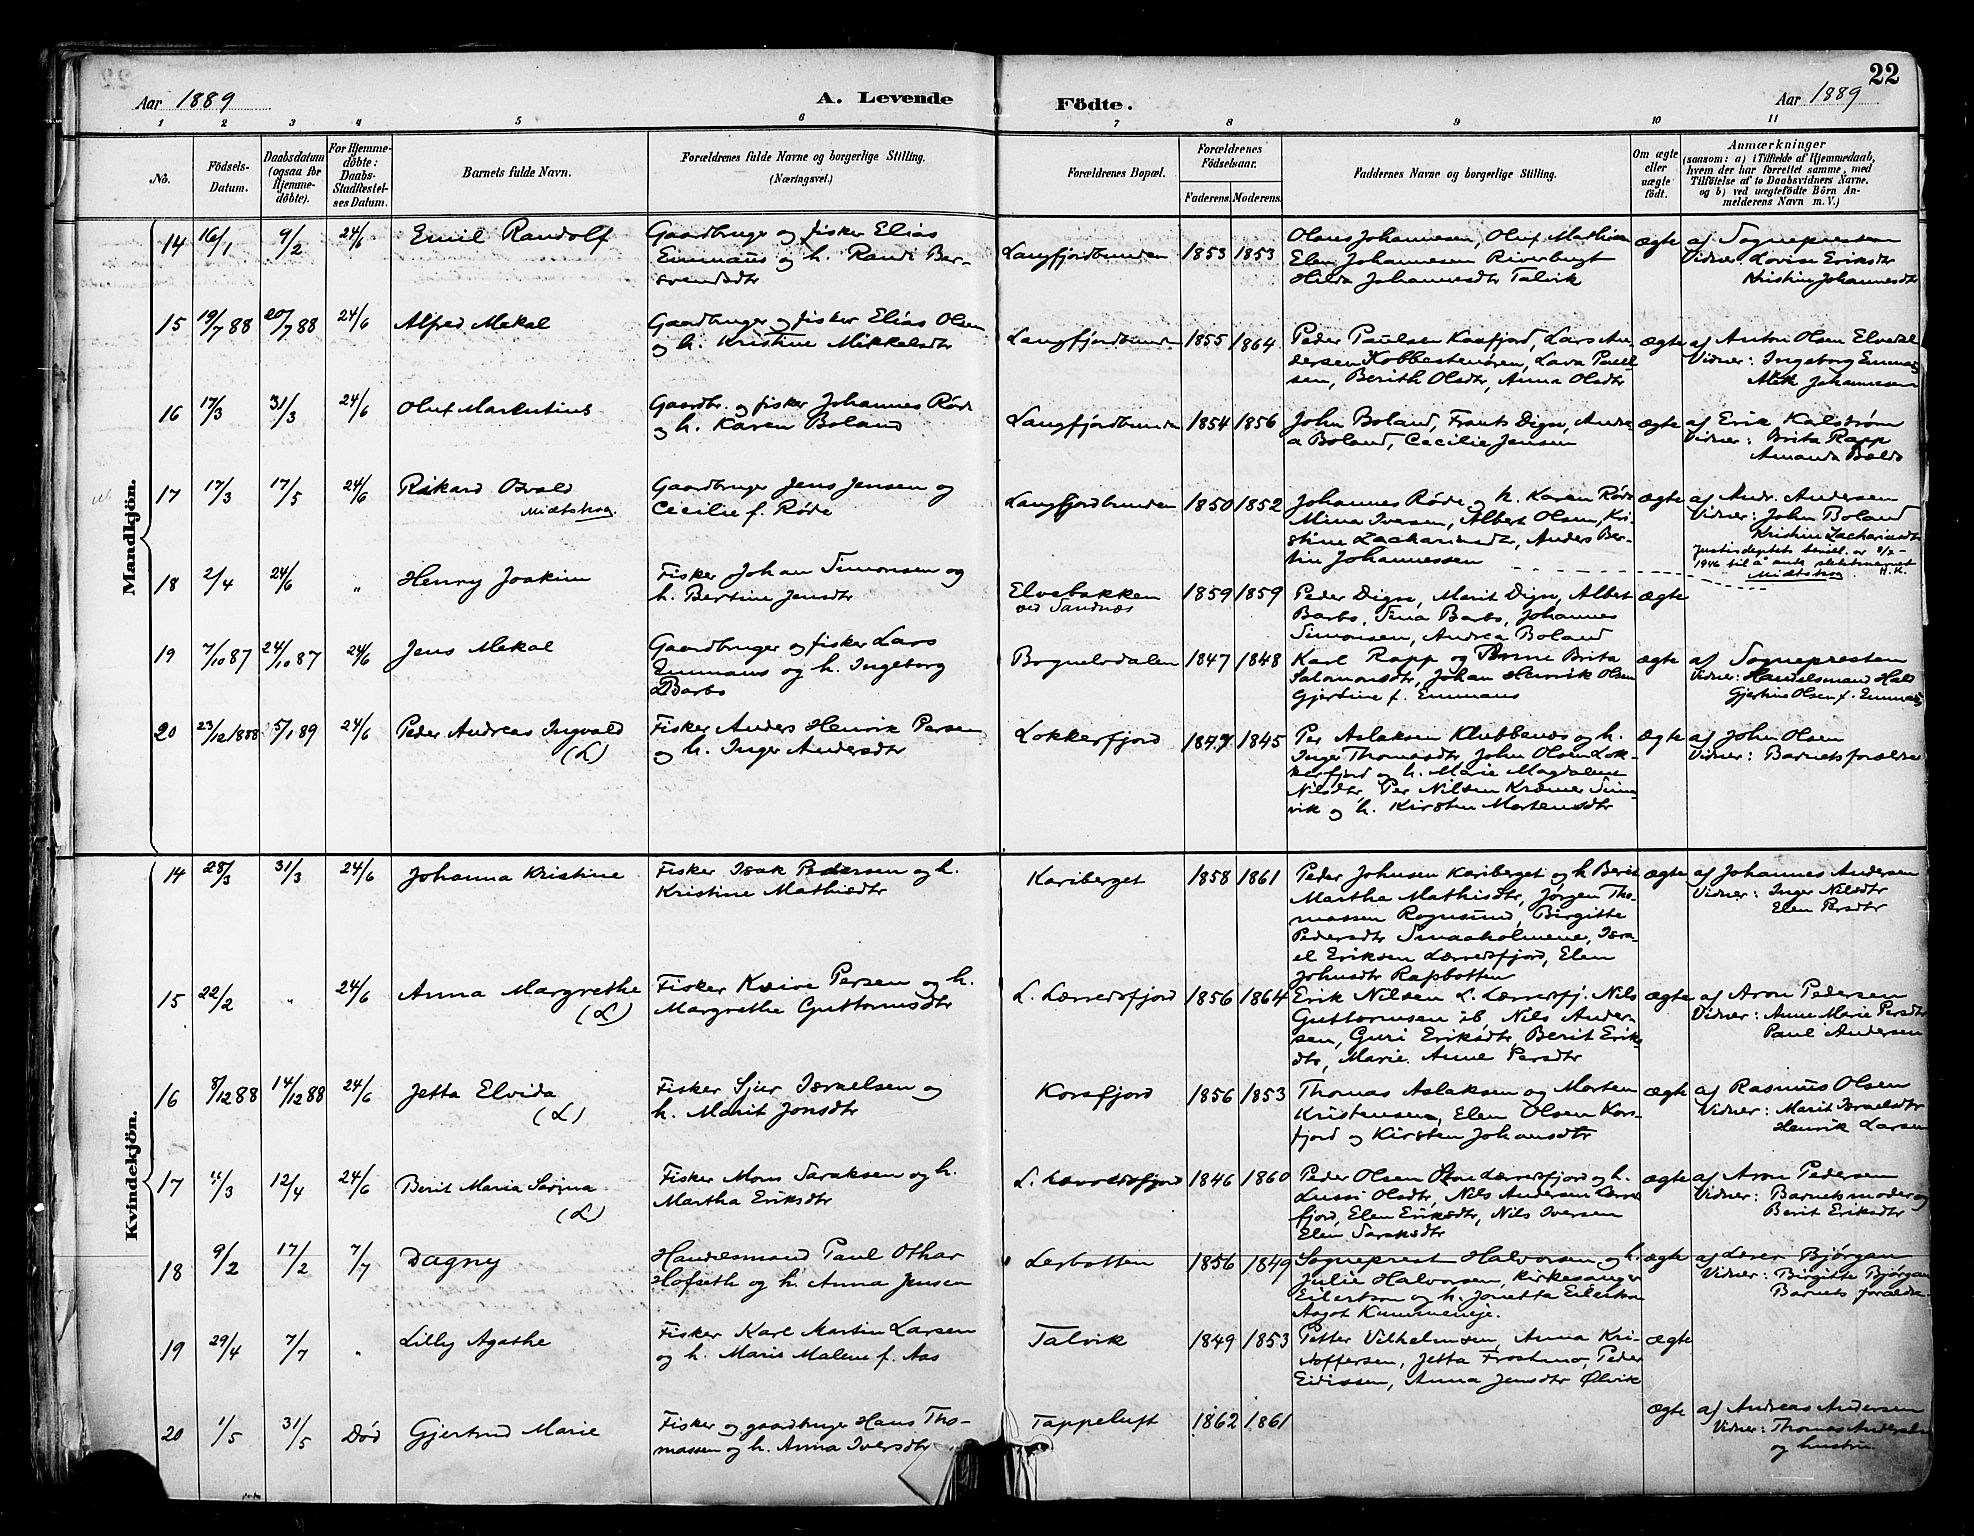 22
Aar 1889
A. Levende
Födte.
Aar 1889
1 2 3 4 5 6 7 8 9 10 11
No.
Födsels-
Datum.
Daabsdatum
(ogsaa for
Hjemme-
döbte).
For Hjemme-
döbte:
Daabs-
Stadfæstel-
ses Datum.
Barnets fulde Navn.
Forældrenes fulde Navne og borgerlige Stilling.
(Næringsvei.)
Forældrenes Bopæl.
Forældrenes
Födselsaar.
Faderens. Moderens.
Faddernes Navne og borgerlige Stilling.
Om ægte
eller
uægte
födt.
Anmærkninger
(saasom: a) i Tilfælde af Hjemmedaab,
hvem der har forrettet samme, med
Tilföielse af to Daabsvidners Navne,
og b) ved uægtefödte Börn An-
melderens Navn m. V.)
Mandkjön.
14 16/1 9/2 24/6 Emil Randolf
Gaardbruger og fisker Elias
Emmaus og h. Randi Ber-
svendsdtr
Langfjordbunden 1853 1853
Olaus Johannesen, Oluf Mathisen
Elen Johannesen Riverbugt
Hilda Johannesdtr Talvik
ægte
af Sognepresten
Vidner: Lovise Eriksdtr
Kristine Johannesdtr
15 19/7 88 20/7 88 24/6 Alfred Mekal
Gaardbruger og fisker Elias Olsen
og h. Kristine Mikkelsdtr
Langfjordbunden 1855 1864
Peder Paulsen Kaafjord, Lars An-
dersen Kobbestenören, Lava Paul-
sen, Berith Olsdtr, Anna Olsdtr
ægte
af Anton Olsen Elvedal
Vidner: Ingeborg Emmaus
Johannessen
16 17/3 31/3 24/6 Oluf Markutius
Gaardbr. og fisker Johannes Røde
og h. Karen Boland
Langfjordbunden 1854 1856
John Boland, Frants Digre, Andre-
a Boland, Cecilie Jensen
ægte
af Erik Kalstrøm
Vidner: Brita Rapp
Amanda
17 17/3 17/5 24/6 Rikard Osvald
Midtskog.
Gaardbruger Jens Jensen og
Cecilie f. Røde
Langfjordbunden 1850 1852
Johannes Røde og h. Karen Røde
Mina Iversen, Albert Olsen, Kri-
stine Zachariasdtr, Anders Ber-
tin Johannessen
ægte
af Andr. Andersen
Vidner: John Boland
Kristine Zachariasdtr
Justisdeptets bevill. av
1946 til å anta slektsnavnet
Midtskog. H.K.
18 2/4 24/6 " Henry Joakim
Fisker Johan Simonsen og
h. Bertine Jensdtr
Elvebakken
ved Sandnæs
1859 1859
Peder Digre, Marit Digre, Albert
Barbo, Sina Barbo, Johannes
Simonsen, Andrea Boland
ægte
19 7/10 87 24/10 87 24/6 Jens Mekal
Gaardbruger og fisker Lars
Emmaus og h. Ingeborg
Barbo
Bognelvdalen 1847 1848
Karl Rapp og Anne Brita
Salomonsdtr, Johan Henrik Olsen
Gjertine f. Emmaus
ægte
af Sognepresten
Vidner: Handelsmand Hald
Gjertine Olsen f. Emmaus
20 23/12 1888 5/1 89 24/6 Peder Andreas Ingvald
(L)
Fisker Anders Henrik Persen
og h. Inger Andersdtr
Lokkerfjord 1847 1845
Per Aslaksen Klubbenæs og h.
Inger Thomasdtr, John Olsen Lok-
kerfjord og h. Marie Magdalene
Nilsdtr, Per Nilsen Kræmer Sim-
vik og h. Kirsten Mortensdtr
ægte
af John Olsen
Vidner: Barnets forældre
Kvindekjön.
14 28/3 31/3 24/6 Johanna Kristine
Fisker Isak Pedersen og h.
Kristine Mathisdtr
Kariberget 1858 1861
Peder Johnsen Kariberget og h Berit
Martha Mathisdtr, Jørgen Tho-
massen Rognsund, Birgitte
Pedersdtr Smaaholmene, Isra-
el Eriksen Lærredsfjord, Elen
Johnsdtr Rafsbotten
ægte
af Johannes Andersen
Vidner: Inger Nilsdtr
Elen Persdtr
15 22/2 " 24/6 Anna Margrethe
(L)
Fisker Persen og h.
Margrethe Guttormsdtr
L. Lærredsfjord 1856 1864
Erik Nilsen L. Lærredsfj. Nils
Guttormsen ib Nils Ander-
sen, Guri Eriksdtr, Berit Eriks-
dtr, Marie Anne Persdtr
ægte
af Aron Pedersen
Vidner: Anne Marie Persdtr
Paul Andersen
16 8/12 88 14/12 88 24/6 Jetta Elvida
(L)
Fisker Sjur Israelsen og
h. Marit Jonsdtr
Korsfjord 1856 1853
Thomas Aslaksen og Morten
Kristensen, Elen Olsen Kors-
fjord og Kirsten Johansdtr
ægte
af Rasmus Olsen
Vidner: Marit Israelsdtr
Henrik Larsen
17 4/3 12/4 24/6 Berit Maria
(L)
Fisker Mons Saraksen og h.
Martha Eriksdtr
L. Lærredsfjord 1846 1860
Peder Olsen Lærredsfjord og h.
Lussi Olsdtr, Nils Andersen Lærreds-
fjord, Elen Eriksdtr, Nils Iversen
Elen Saraksdtr
ægte
af Aron Pedersen
Vidner: Barnets moder og
Berit Eriksdtr
18 9/2 17/2 7/7 Dagny
Handelsmand Paul Othar
Hofseth og h. Anna Jensen
Lerbotten 1856 1849
Sogneprest Halvorsen og h.
Julie Halvorsen, kirkesanger
Eilertsen og h. Jonetta Eilertsen
Aagot Kummeneje.
ægte
af Lærer Bjørgan
Vidner: Birgitte Bjørgan
Barnets forældre
19 29/4 7/7 " Lilly Agathe
Fisker Karl Martin Larsen
og h. Marie Malene f. Aas
Talvik 1849 1853
Petter Vilhelmsen, Anna Kri-
stoffersen, Jetta Frostmo, Peder
Eidissen, Anna Jensdtr Ølvik
ægte
20 1/5 31/5 Død Gjertrud Marie
Fisker og gaardbruger Hans Tho-
massen og h. Anna Iversdtr
Tappeluft 1862 1861
ægte
af Andreas Andersen
Vidner: Thomas Andersen
og hustru